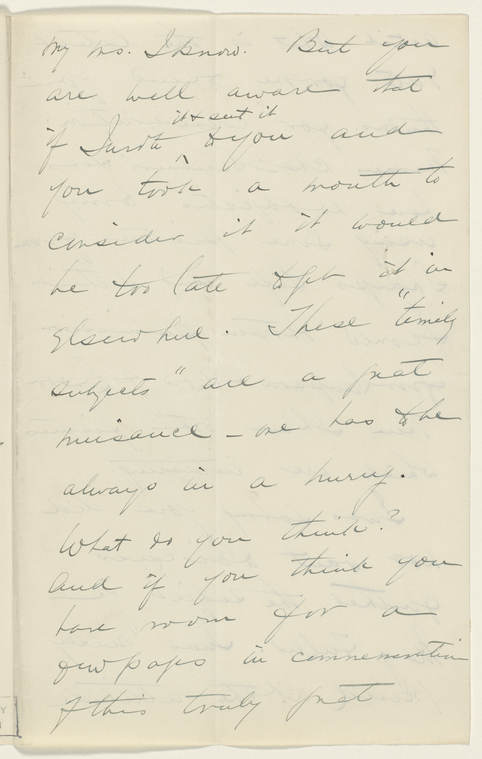 my ms. I know. But you
are well aware that
it & sent it
if I wrote ^ to you and
you took a month to
consider it it would
be too late to get it in
elsewhere. These "timely
subjects" are a great
nuisance – one has to be
always in a hurry.
What do you think?
And if you think you
have room for a
few pages in commemoration
of this truly great